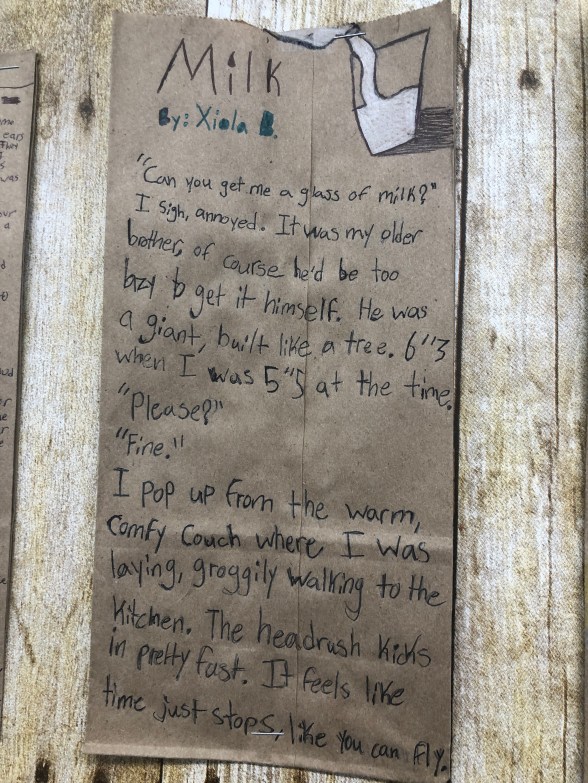 Milk
By: Xiola B.
"Can you get me a glass of milk?"
I sigh, annoyed. It was my older
brother, of course he'd be too
lazy to get it himself. He was
a giant, built like a tree. 6"3
when I was 5"5 at the time.
"Please?"
"Fine."
I pop up from the warm,
comfy couch where I was
laying, groggily walking to the
kitchen. The headrush kicks
in pretty fast. It feels like
time just stops, like you can fly.
ears
was